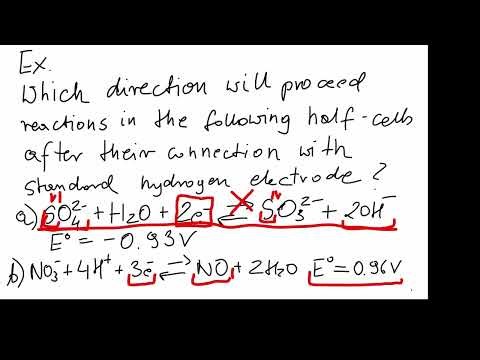 Ex.
Which direction will proceed
reactions in the following half-cells
after their connection with
standard hydrogen electrode?
a) SO₄²⁻ + H₂O + 2e⁻ ⇌ SO₃²⁻ + 2OH⁻
E° = -0.93V
b) NO₃⁻ + 4H⁺ + 3e⁻ ⇌ NO + 2H₂O E° = 0.96V